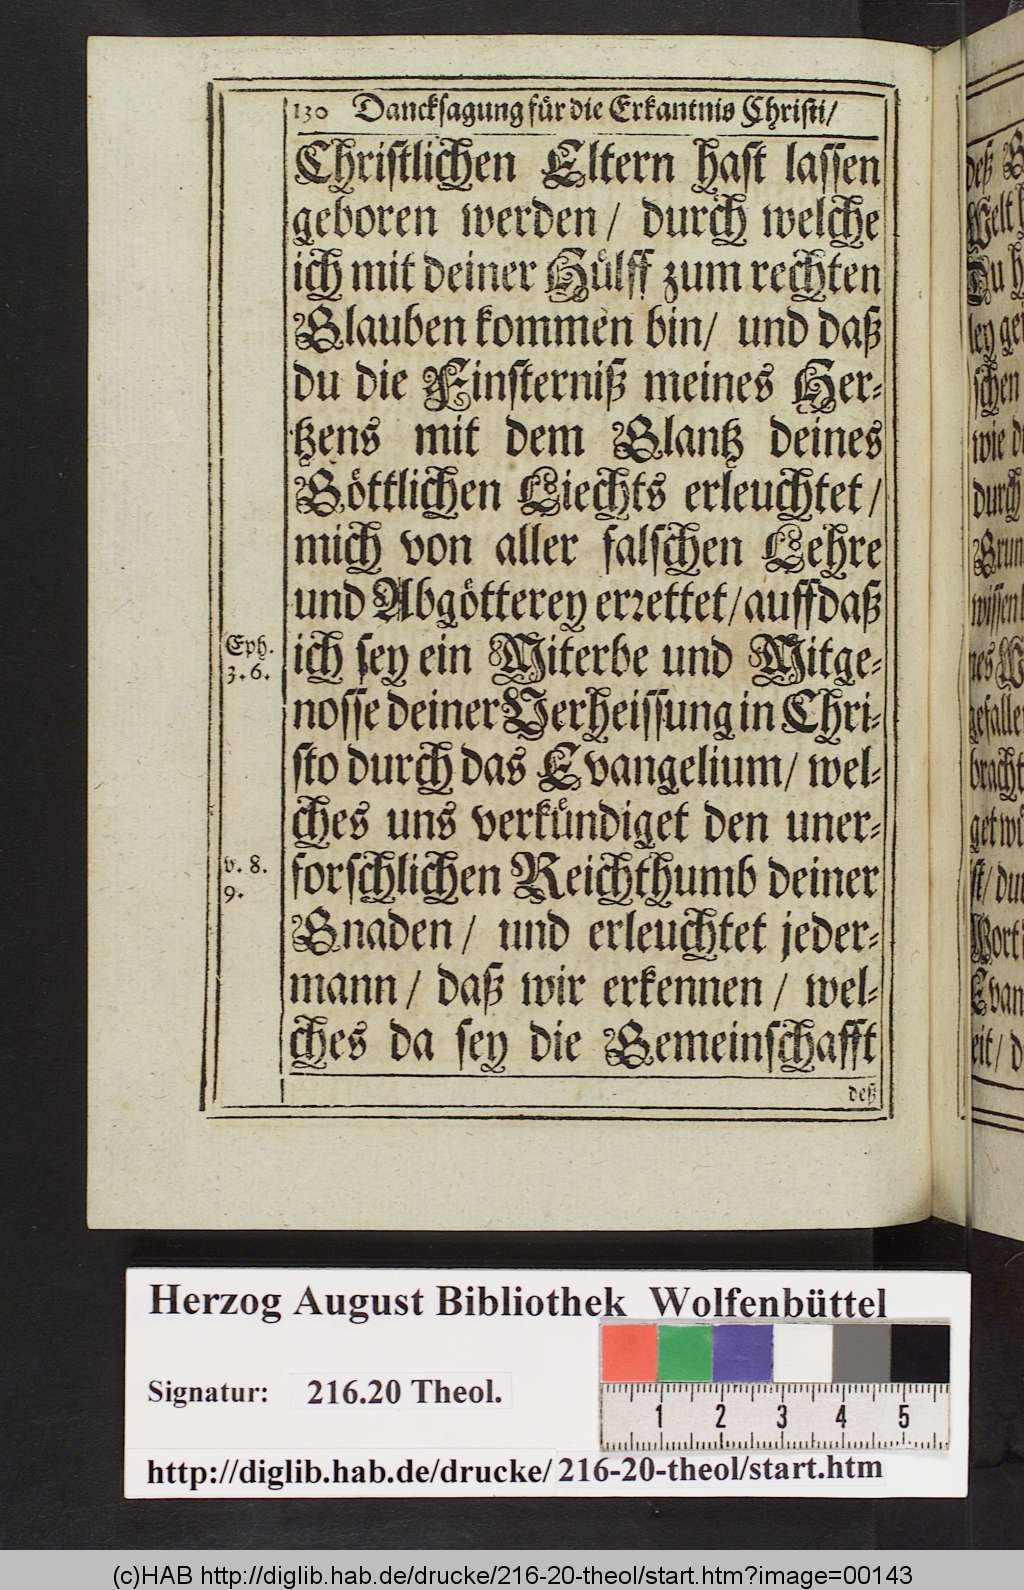 130 Dancksagung für die Erkantnis Christi/
Christlichen Eltern hast lassen
geboren werden/ durch welche
ich mit deiner Hülff zum rechten
Glauben kommen bin/ und daß
du die Finsterniß meines Her-
tzens mit dem Glantz deines
Göttlichen Liechts erleuchtet/
mich von aller falschen Lehre
und Abgötterey errettet/auffdaß
Eph. 3. 6.
ich sey ein Miterbe und Mitge-
nosse deiner Verheissung in Chri-
sto durch das Evangelium/ wel-
ches uns verkündiget den uner-
v. 8. 9.
forschlichen Reichthumb deiner
Gnaden/ und erleuchtet jeder-
mann/ daß wir erkennen/ wel-
ches da sey die Gemeinschafft
deß
deß
Welt
Du
ley
schen
wie
durch
wissen
nes
bracht
st/ dur
Wort
eit/ d
Herzog August Bibliothek Wolfenbüttel
Signatur: 216.20 Theol.
1 2 3 4 5
http://diglib.hab.de/drucke/216-20-theol/start.htm
(c)HAB http://diglib.hab.de/drucke/216-20-theol/start.htm?image=00143